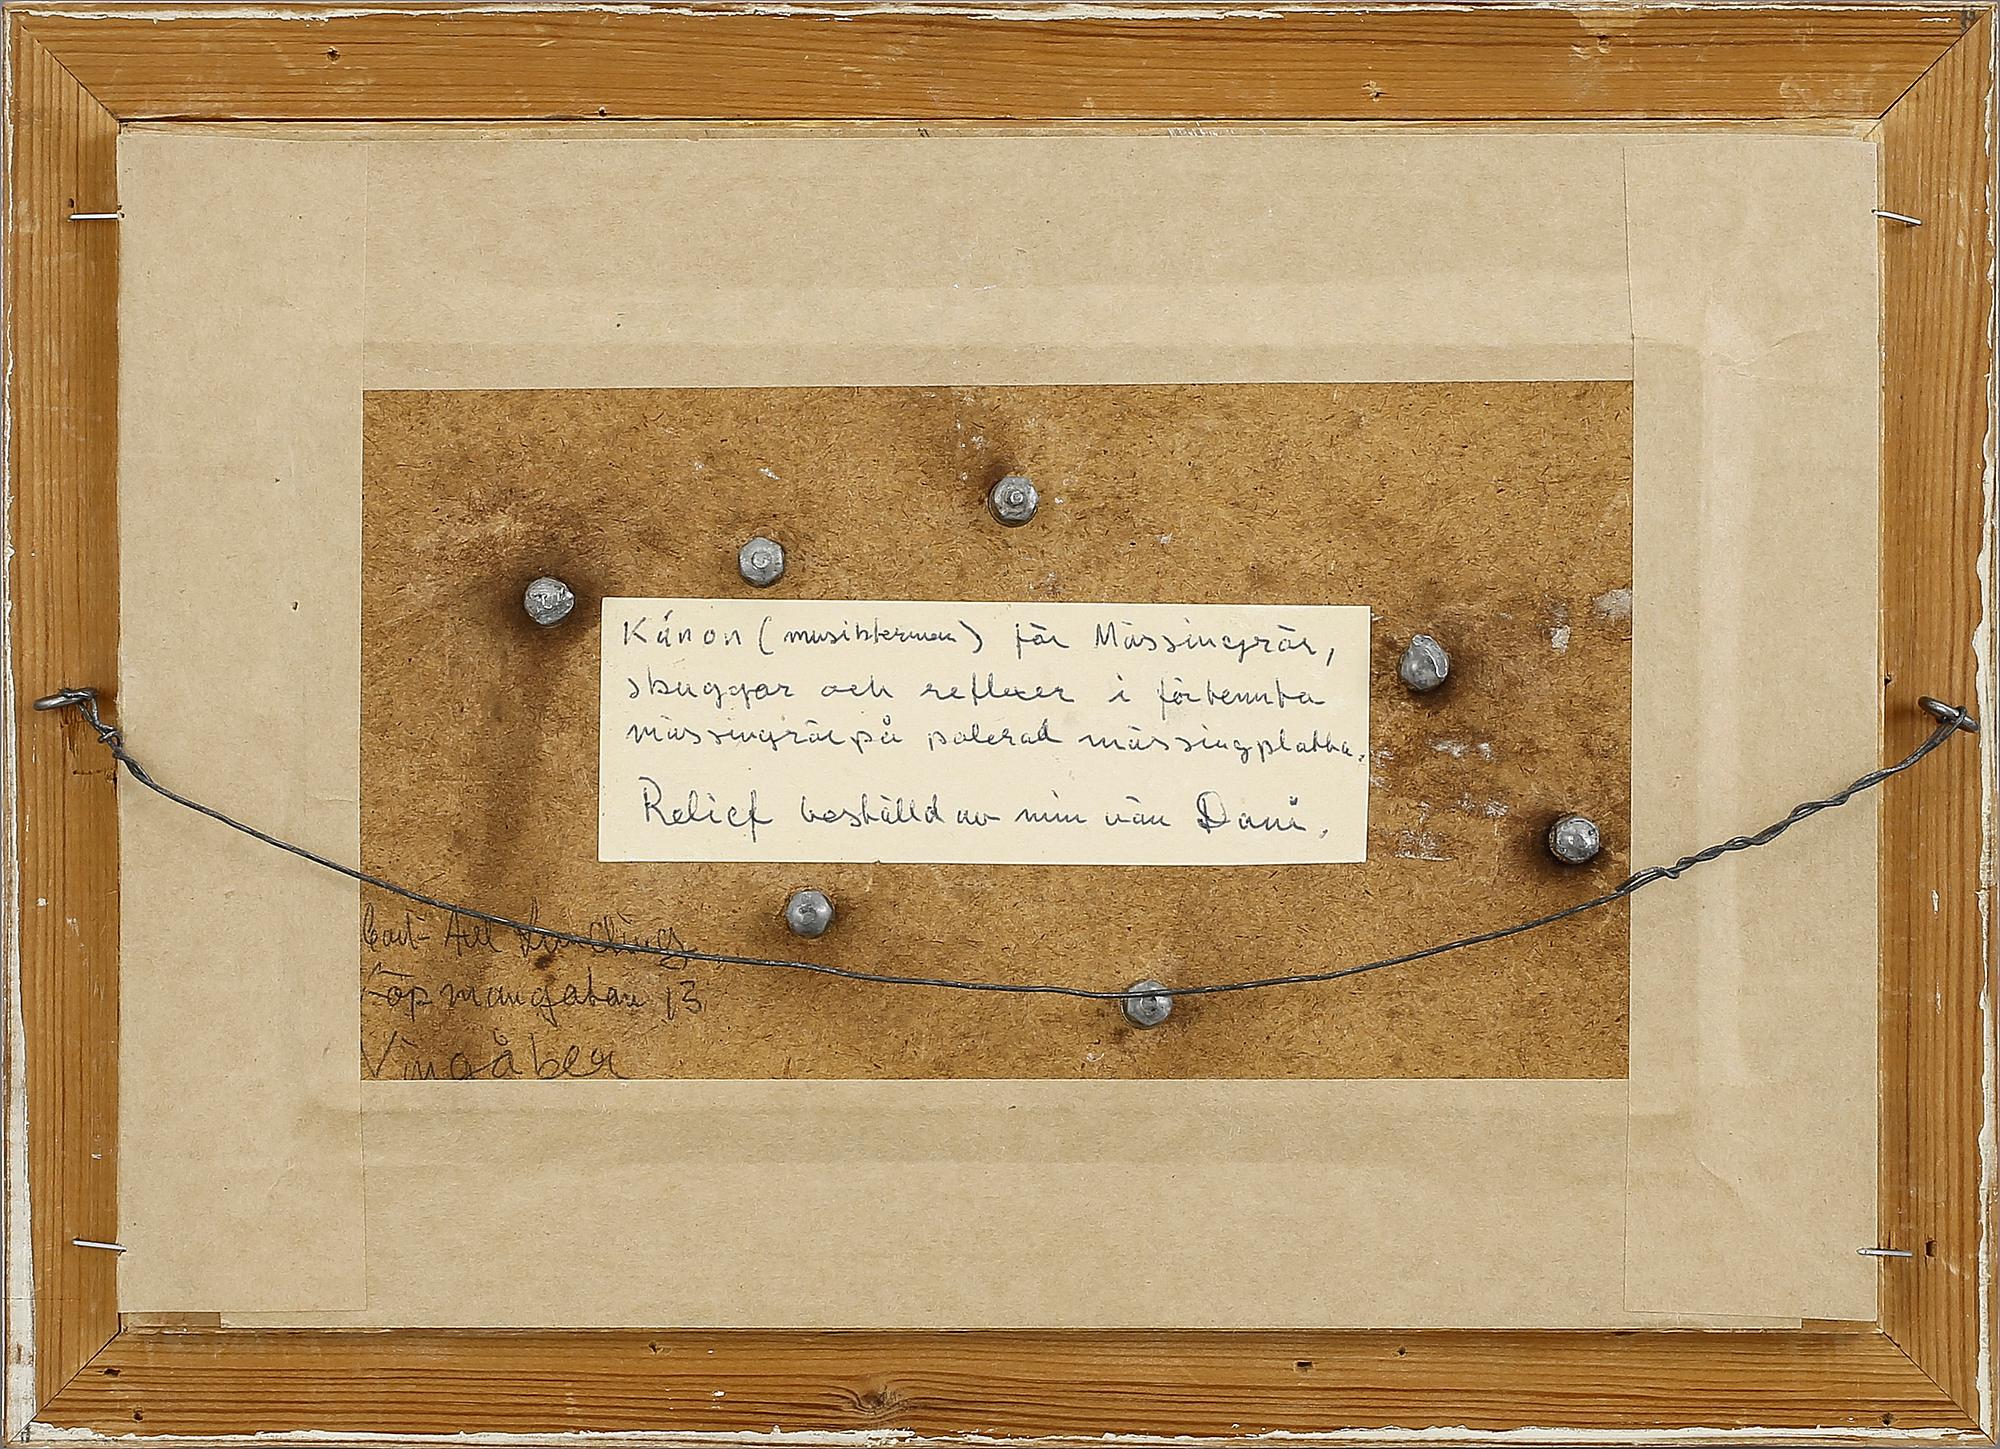 Kánon (musiktermen) för Mässingrör,
skuggor och reflexer i förtennta
mässingrör på polerad mässingplatta.
Relief beställd av min vän Dani.
Carl-Axel
Köpmangatan 13
Vingåker